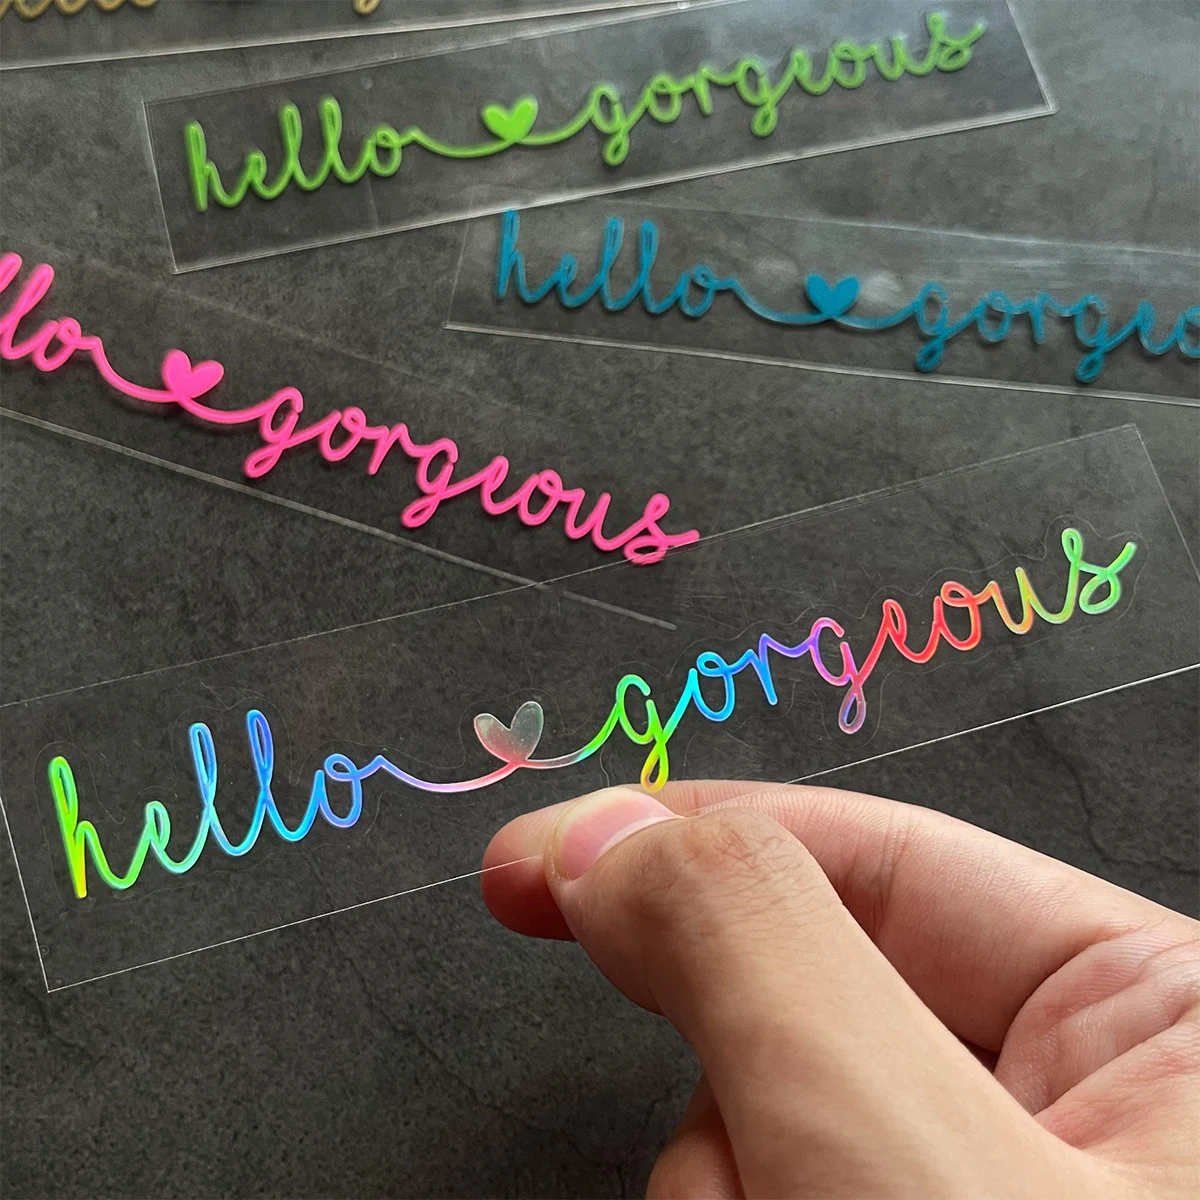 hello gorgeous
hello gorgeo
llo gorgeous
hello gorgeous